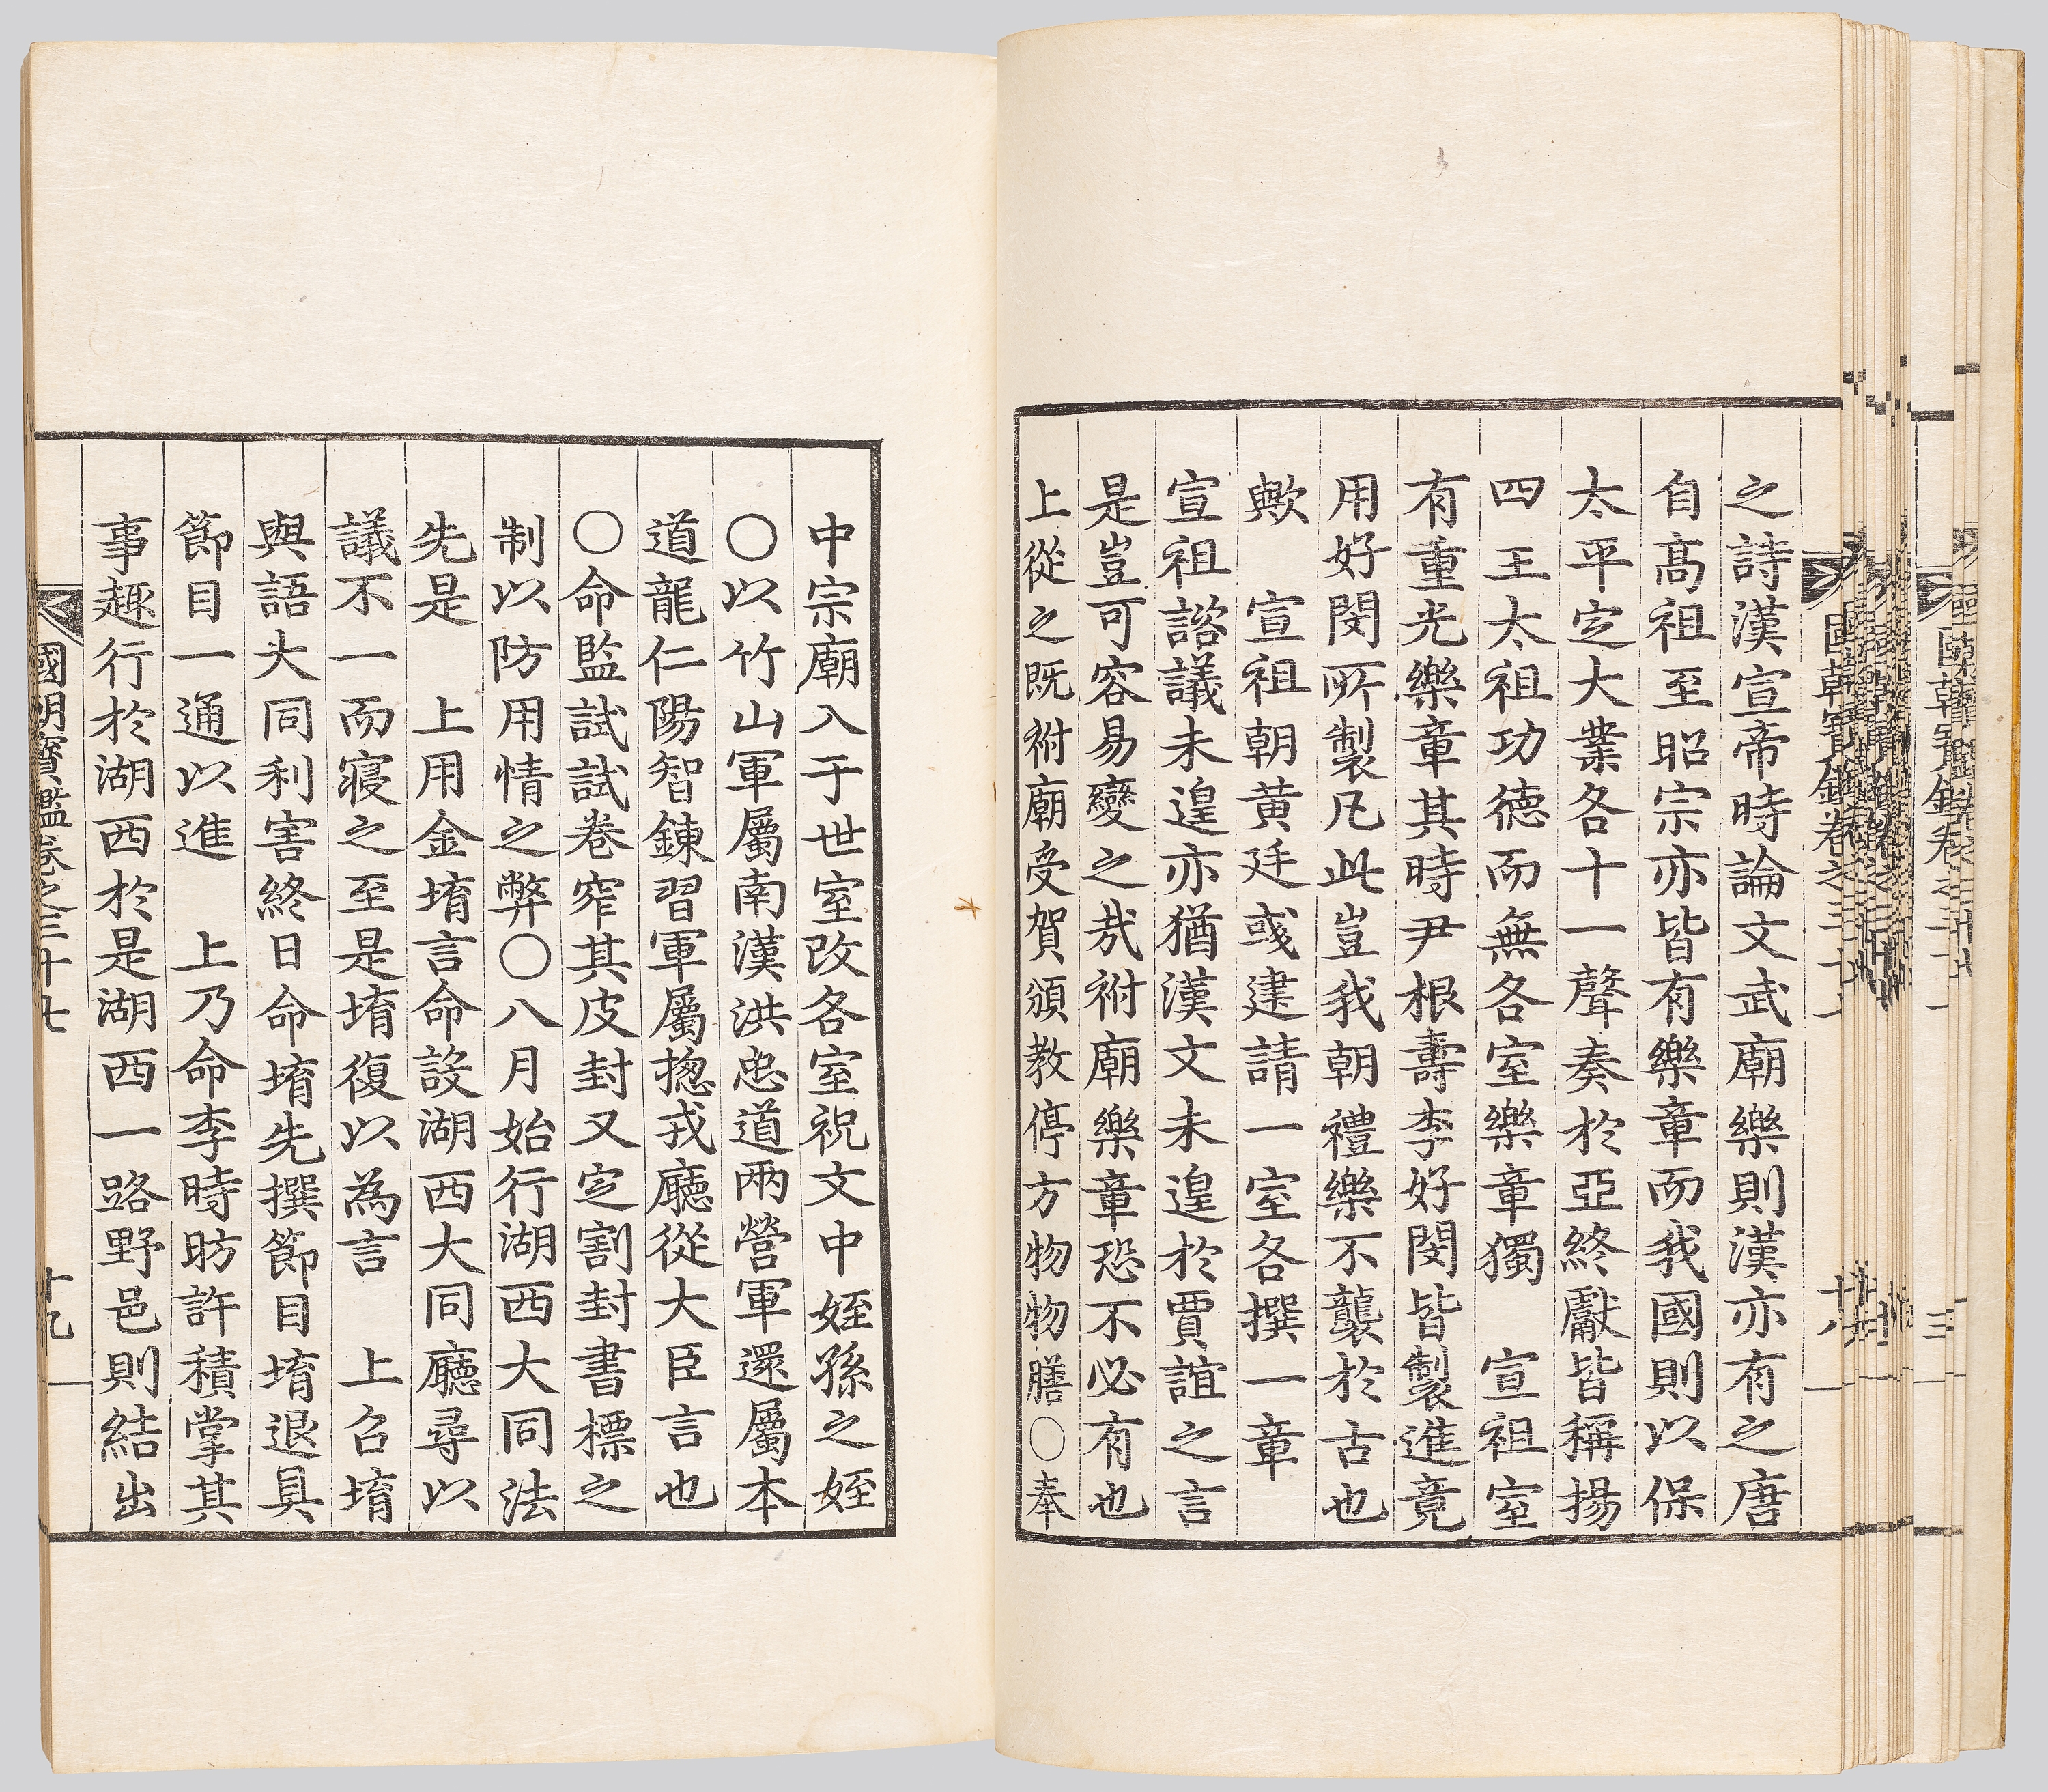 之詩漢宣帝時論文武廟樂則漢亦有之唐
自高祖至昭宗亦皆有樂章而我國則以保
太平定大業各十一聲奏於亞終獻皆稱揚
四 王太祖功德而無各室樂章獨 宣祖室
有重光樂章其時尹根壽李好閔皆製進竟
用好閔所製凡此豈我朝禮樂不襲於古也
歟 宣祖朝黃廷彧建請一室各撰一章
宣祖諮議未遑亦猶漢文未遑於賈誼之言
是豈可容易變之哉祔廟樂章恐不必有也
上從之旣祔廟受賀頒教停方物物膳○奉
中宗廟入于世室改各室祝文中姪孫之姪
○以竹山軍屬南漢洪忠道兩營軍還屬本
道龍仁陽智鍊習軍屬摠戎廳從大臣言也
○命監試試卷窄其皮封又定割封書標之
制以防用情之弊○八月始行湖西大同法
先是 上用金堉言命設湖西大同廳尋以
議不一而寢之至是堉復以為言 上召堉
與語大同利害終日命堉先撰節目堉退具
節目一通以進 上乃命李時昉許積掌其
事趣行於湖西於是湖西一路野邑則結出
國朝寶鑑卷之三十七 十九